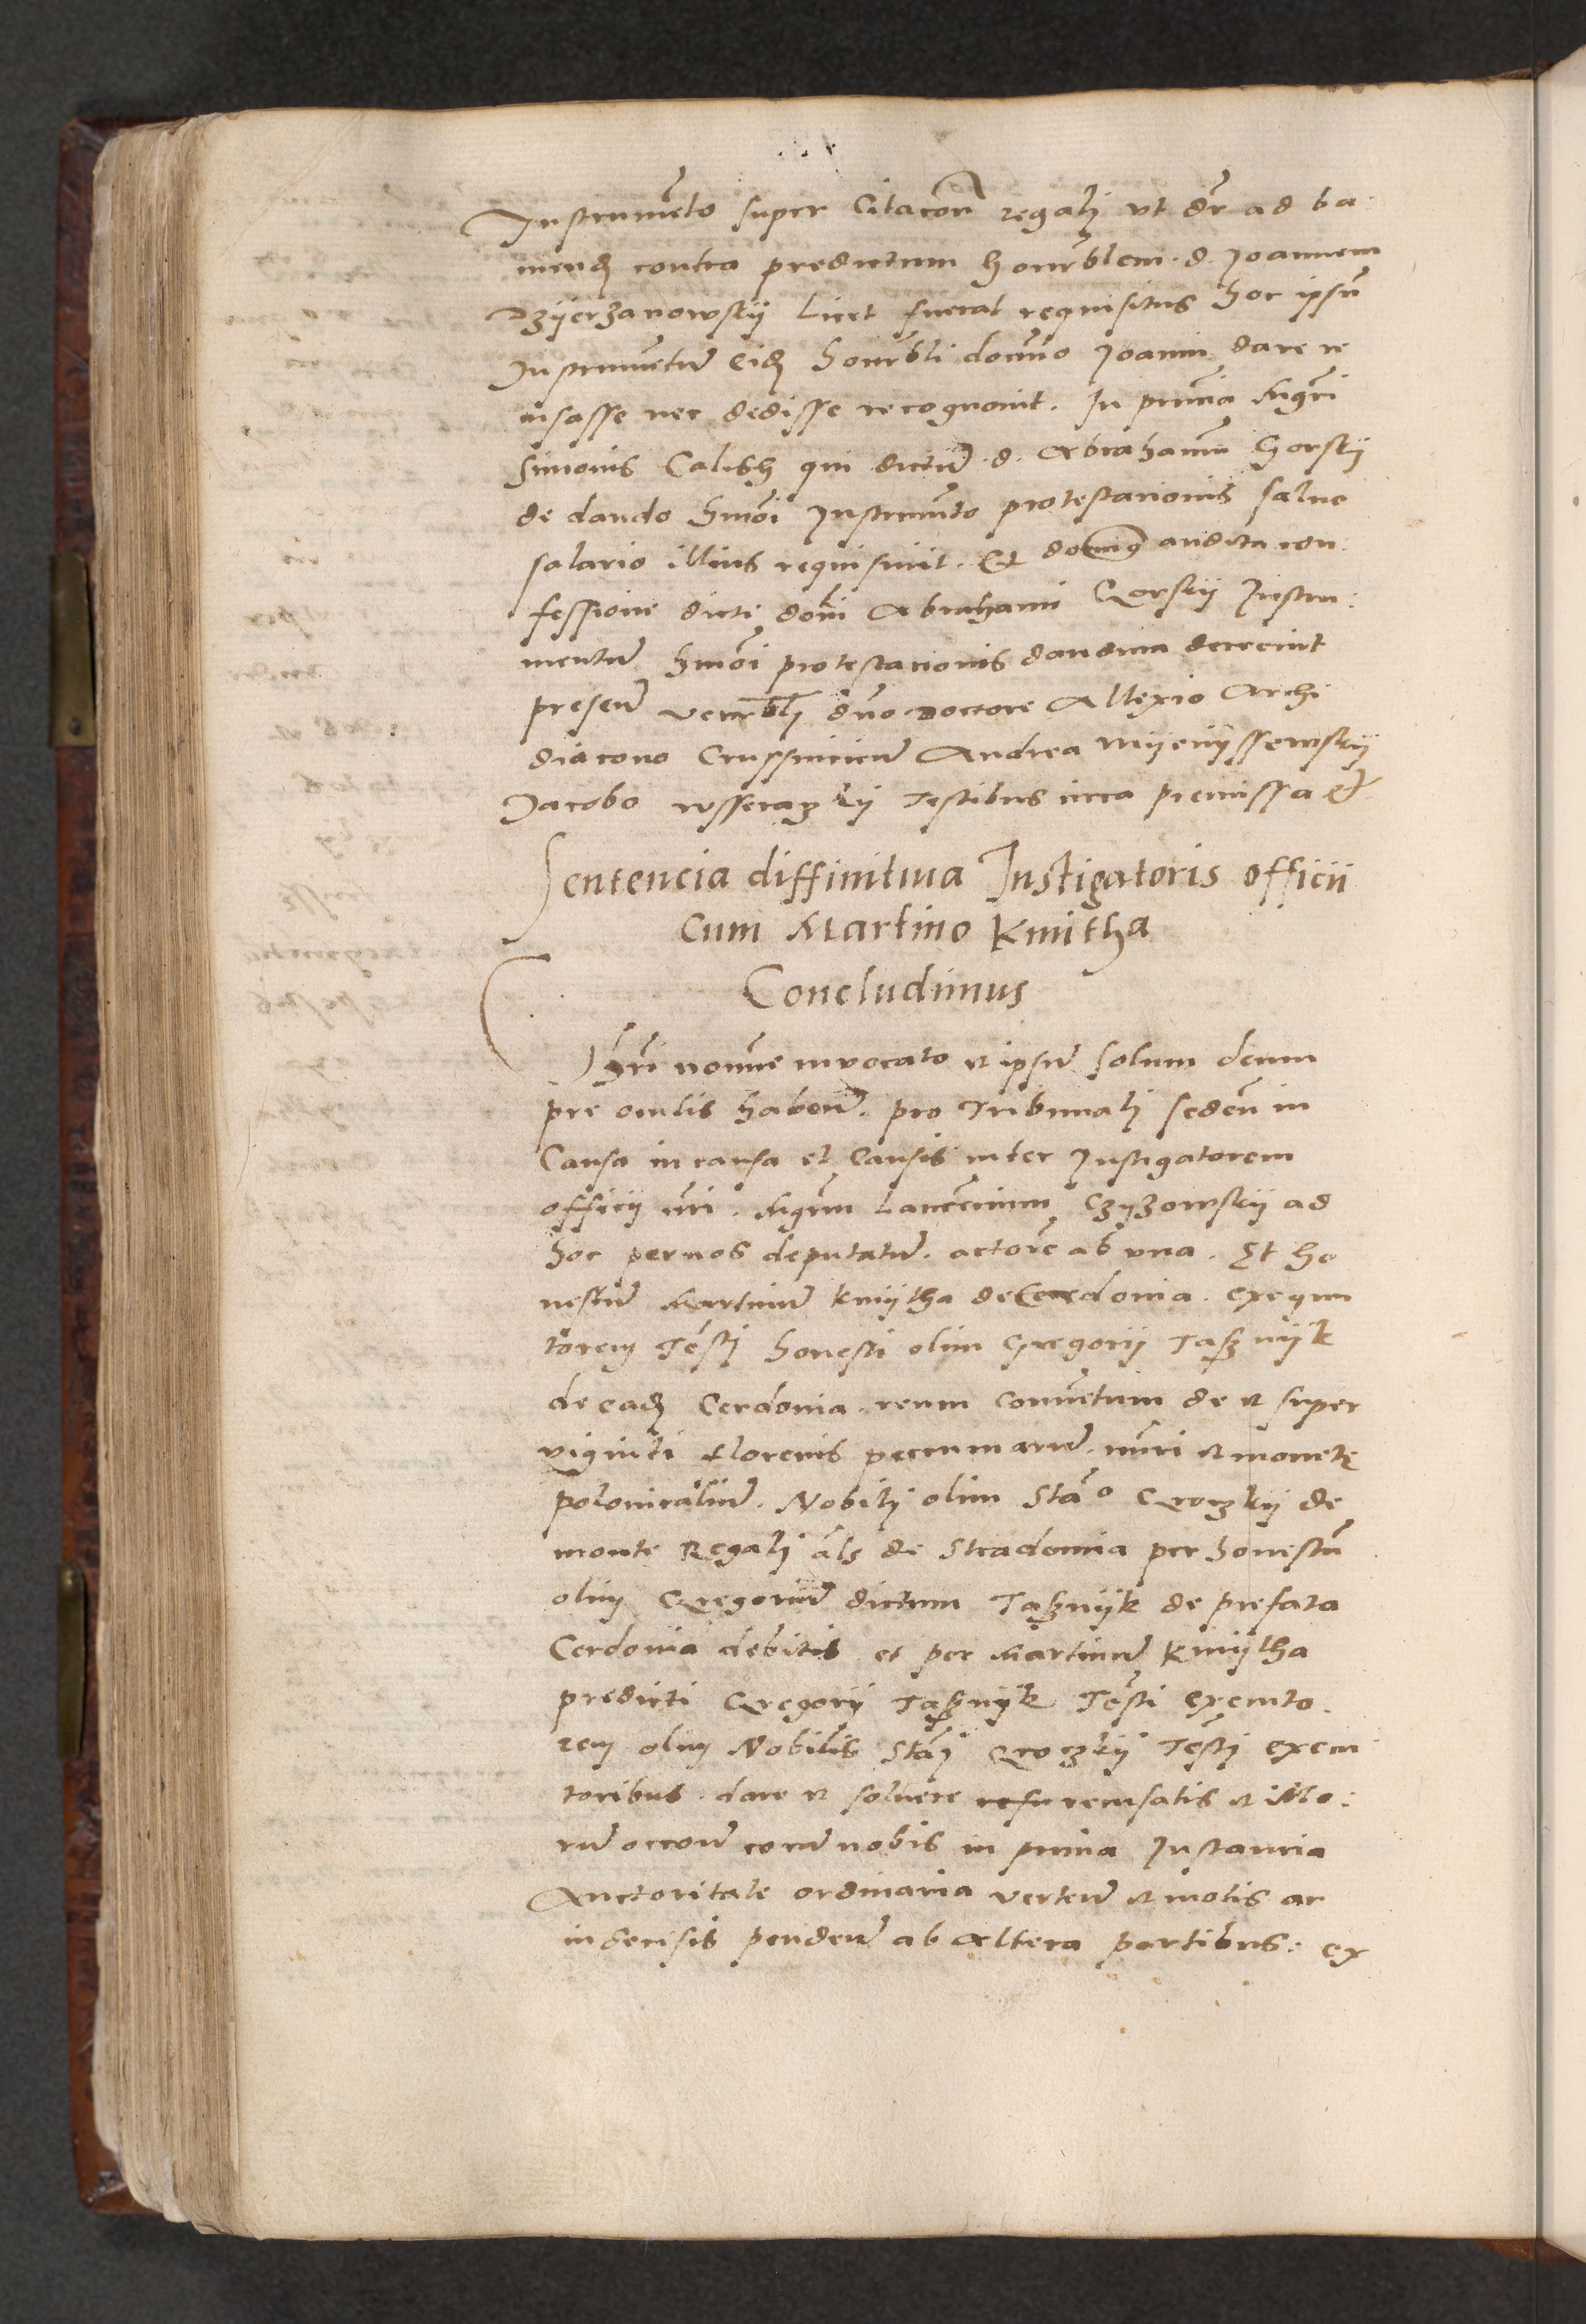 Instrumẽto super Citacoñ regalj vt dr̃ ad ba-
niendȝ contra predictum honorãblem. d. Joannem
Dzÿerzanowskÿ Licet fuerat requisitus hoc ipsũ
Instrumẽtũ Eidȝ honorãbli domño Joanni dare re
cusasse nec dedisse recognouit. In pñtia Mgr̃i
Simonis Calish qui dictũ d. Abrahamũ Gorskÿ
de dando hmõi Instrumẽto protestacionis saluo
salario illius requisiuit. Et dominꝯ audita con:
fessione dicti domi Abrahami Gorskÿ Instru:
mentũ hmõi protestacionis dandum decreuit
presentꝭ venerãblj dño doctore Allexio Archi
diacono Crusſuicien̄ Andrea Mÿenÿssewskÿ
Jacobo testibus circa premissa et
Sentencia diffinitiua Instigatoris officii
Cum Martino Kmitha
Concludimus
Chrı̃ nomine inuocato et ipsũ solum deum
pre oculis habeñ. pro Tribunalj sedeñ in
Causa in causa et Causis inter Instigatorem
officij nr̃i. Mgrũm Laurencium Czÿzowskÿ ad
hoc per nos deputatũ. actorẽ ab vna. Et ho
nestũ Martinũ kmÿtha de Cerdonia. exequu
torem Tẽstj honesti olim Gregorij Taßnÿk
de eadȝ Cerdonia. reum conuẽtum de et super
viginti Florenis pecuniarũ. nũri et monetę
polonicaliũ. Nobilj olim Stãº Groczkÿ de
monte Regalj als̃ de Stradomia per honestũ
olim Gregoriũ dictum Taßnÿk de prefata
Cerdonia debitis et per Martinũ Kmÿtha
predicti Gregorij Taßnÿk Tẽsti executo.
rem olim Nobilis Stãj Groczkÿ Tẽstj execu
toribus. dare et soluere refu recusatis et illo:
rũ occoñ corã nobis in prima Instancia
Auctoritate ordinaria verteñ et motis ac
indecisis pendeñ ab altera partibus: ex